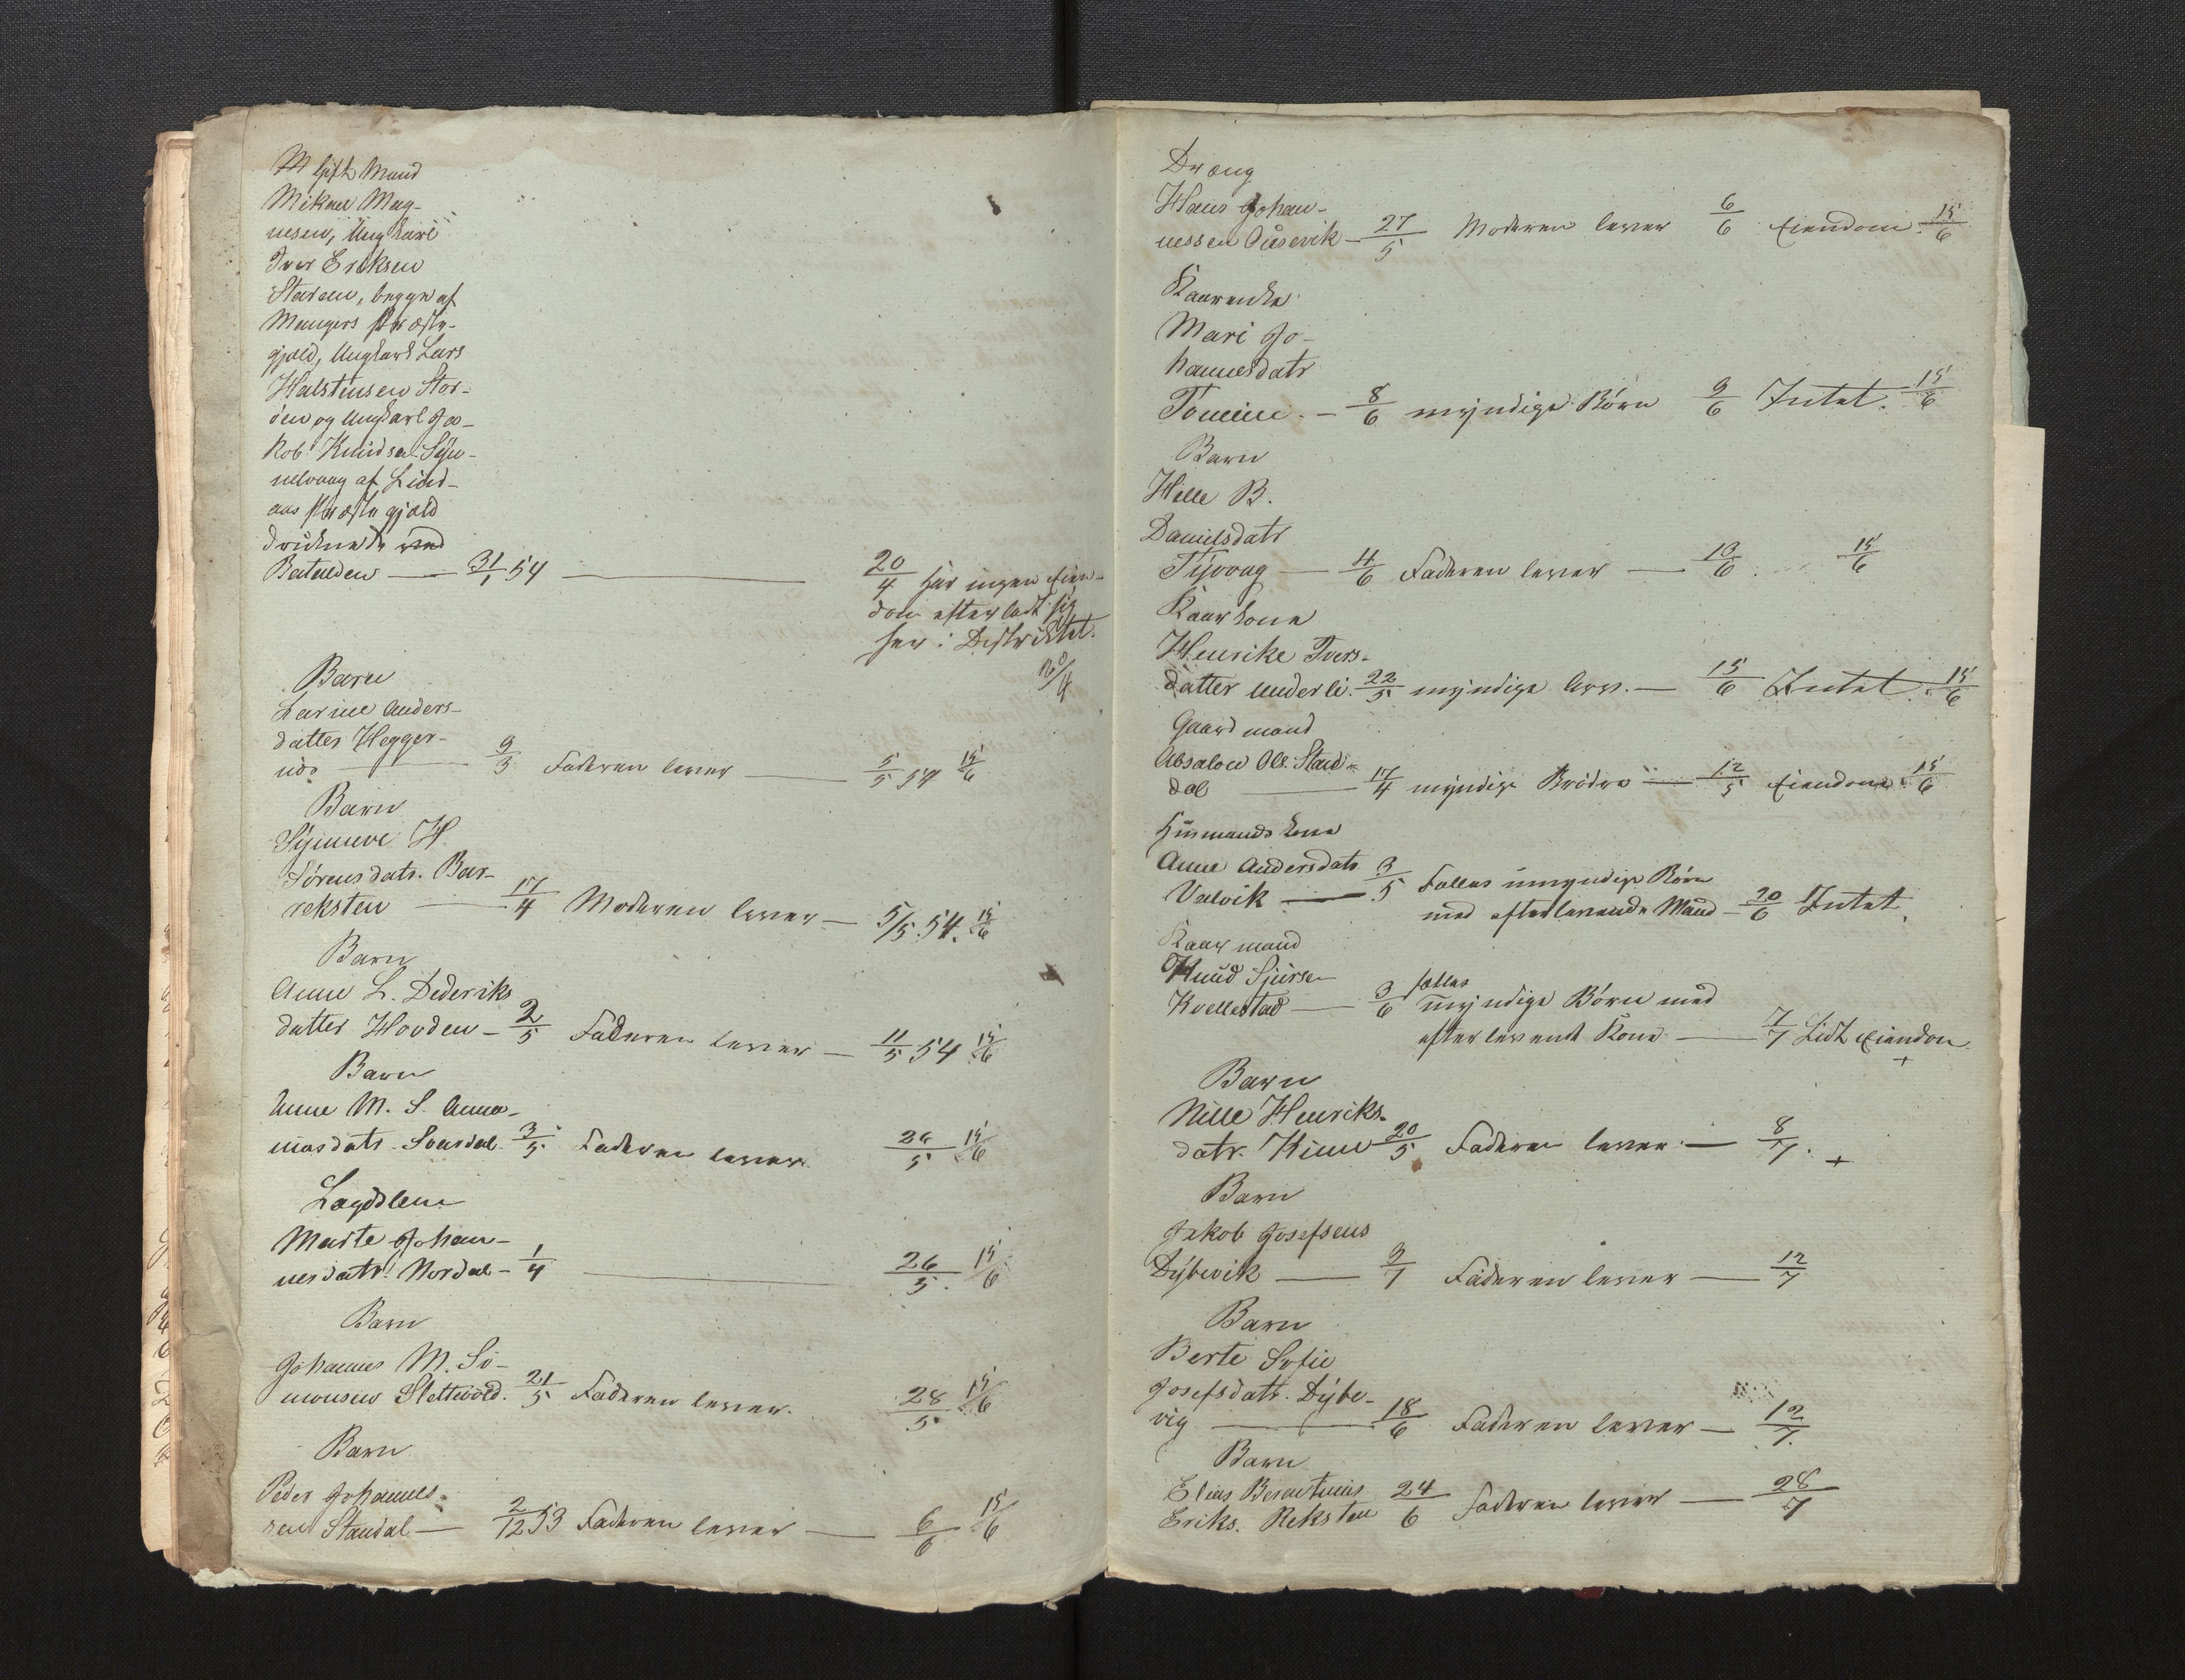 Gift Mand
Mikael Mag-
nesen, Ungkarl
Iver Eriksen
begge af
Mangers Præste-
gjæld, Ungkarl Lars
Halstensen Stor-
öen og Ungkarl Ja-
kob Knudsen Syn-
nevaag af Lind-
aas Præstegjæld
druknede ved
Batalden — 31/1 54 — 20/4 har ingen Eien-
dom efterladt sig
her i Distriktet.
20/4
Barn
Larine Anders-
datter Hegger-
nes — 9/3 Faderen lever — 5/5 54 15/6
Barn
Synneve H.
Sörensdatr. Bar-
reksten — 17/4 Moderen lever — 5/5 54. 15/6
Barn
Anne L. Dideriks
datter Hovden — 2/5 Faderen lever — 11/5 54 15/6
Barn
Anne M. S. Anna-
niasdatr. Svardal 3/5 Faderen lever 26/5 15/6
Lægdslem
Marte Johan-
nesdatr. Nordal — 1/4 — 26/5. 15/6
Barn
Johannes M. Si-
monsen Slettevold. 21/5 Faderen lever. 28/5 15/6
Barn
Peder Johannes-
sen Standal — 2/12 53 Faderen lever — 6/6 15/6
Dræng
Hans Johan-
nessen Aasevik — 27/5 Moderen lever 6/6 Eiendom. 15/6
Kaarenke
Mari Jo-
hannesdatr
— 8/6 myndige Börn 9/6 Intet. 15/6
Barn
Hille B.
Danielsdatr
Tyvaag — 4/6 Faderen lever — 10/6 15/6
Kaarkone
Henrike Ivers-
datter Underli. 22/5 myndige Arv. — 15/6 Intet. 15/6
Gaardmand
Absalon Ol. Stan-
dal — 17/4 myndige Brödre — 12/5 Eiendom. 15/6
Husmandskone
Anne Andersdatr
Valvik — 3/5 Fælles umyndige Börn
med efterlevende Mand — 20/6 Intet.
Kaarmand
Knud Sjursen
Kvellestad — 3/6 fælles myndige Börn med
efterlevende Kone — 7/7 Lidt Eiendom
+
Barn
Nille Henriks-
datr. Kinn 20/5 Faderen lever — 8/7. +
Barn
Jakob Josefsens
Dybevik — 9/7 Faderen lever — 12/7
Barn
Berte Sofie
Josefsdatr. Dybe-
vig — 18/6 Faderen lever — 12/7.
Barn
Elias Berentinus
Eriks. Reksten 24/6 Faderen lever — 28/7